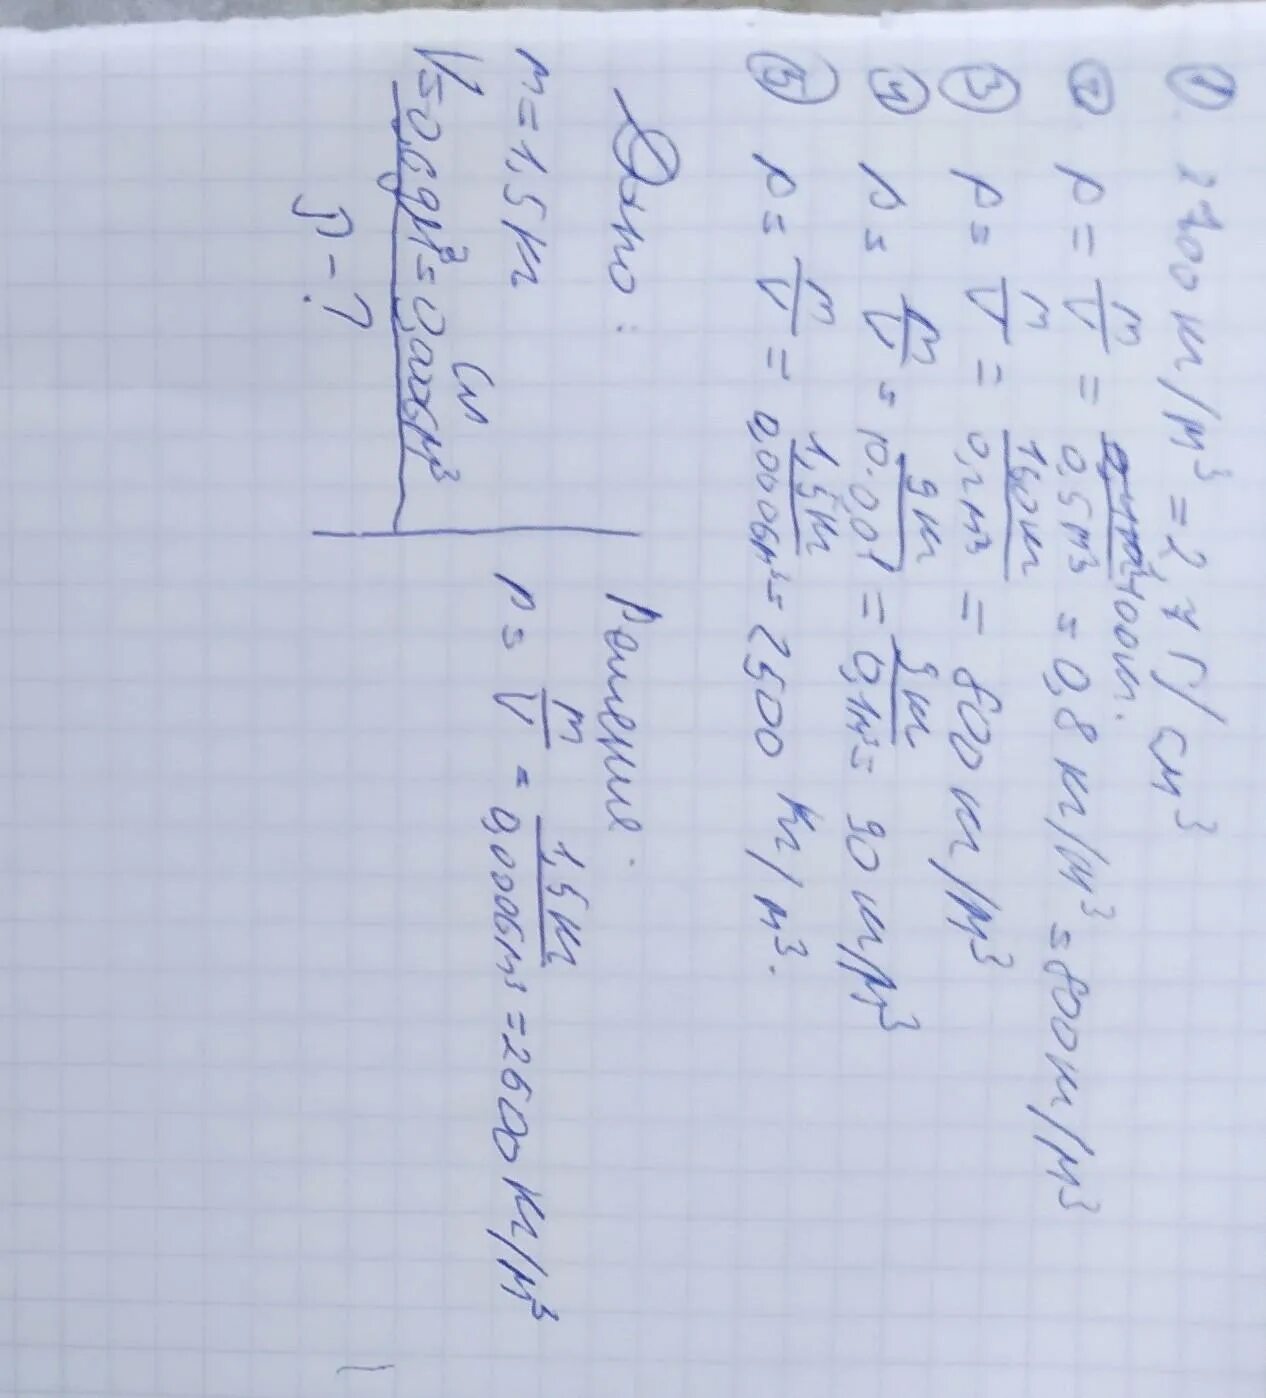 ① 2700 кг/м³ = 2,7 г/см³
② p = m/V = 400кг / 0,5м³ = 0,8 кг/м³ = 800кг/м³
③ p = m/V = 160кг / 0,2м³ = 800 кг/м³
④ p = m/V = 9кг / 10·0,01 = 9кг / 0,1м³ = 90 кг/м³
⑤ p = m/V = 1,5кг / 0,0006м³ = 2500 кг/м³.
Дано:
m = 1,5кг
СИ
V = 0,6дм³ = 0,0006м³
p - ?
Решение.
p = m/V = 1,5кг / 0,0006м³ = 2500 кг/м³